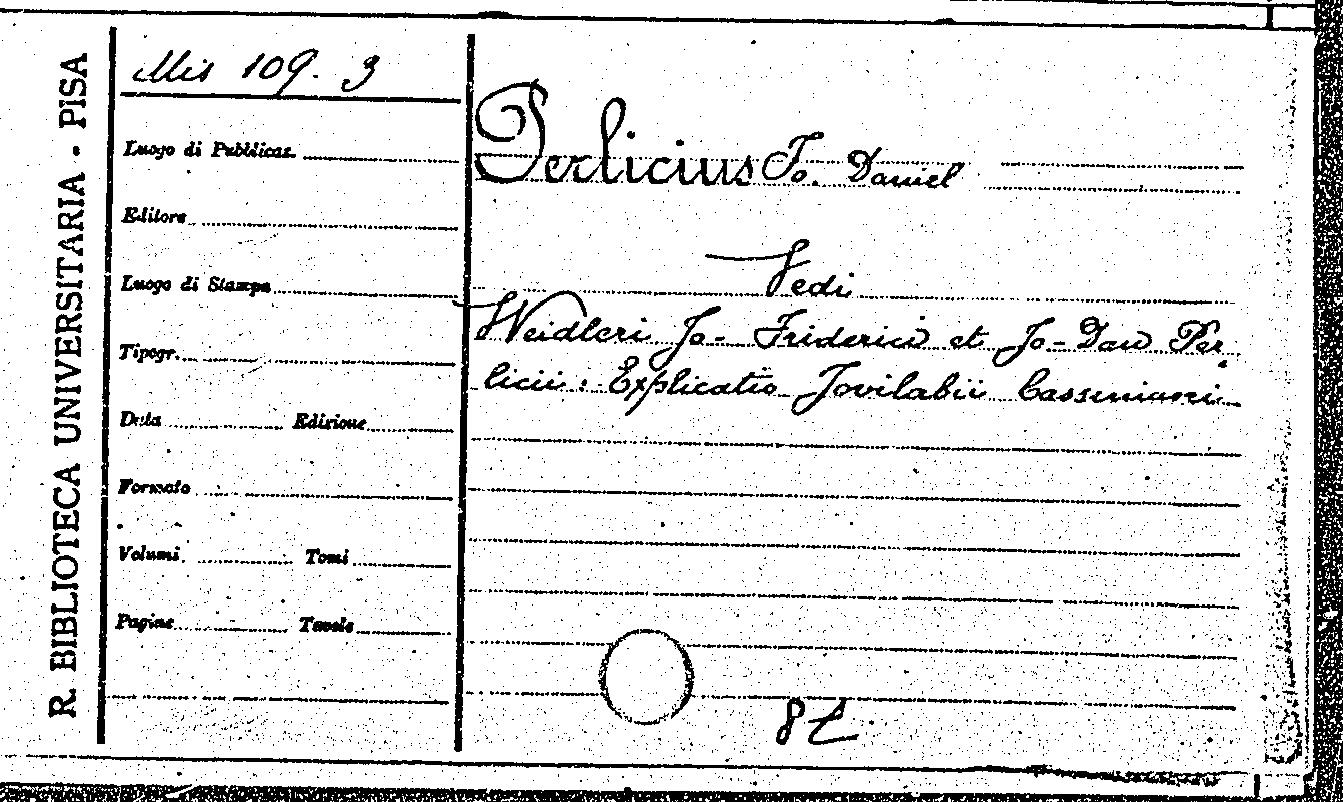 R. BIBLIOTECA UNIVERSITARIA - PISA
Mis 109. 3
Luogo di Pubblicaz.
Editore
Luogo di Stampa
Tipogr.
Data Edizione
Formato
Volumi Tomi
Pagine Tavole
Perlicius Jo. Daniel
Vedi
Weidleri Jo- Friderici et Jo-Dan Per
licii: Explicatio Jovilabii Cassiniani